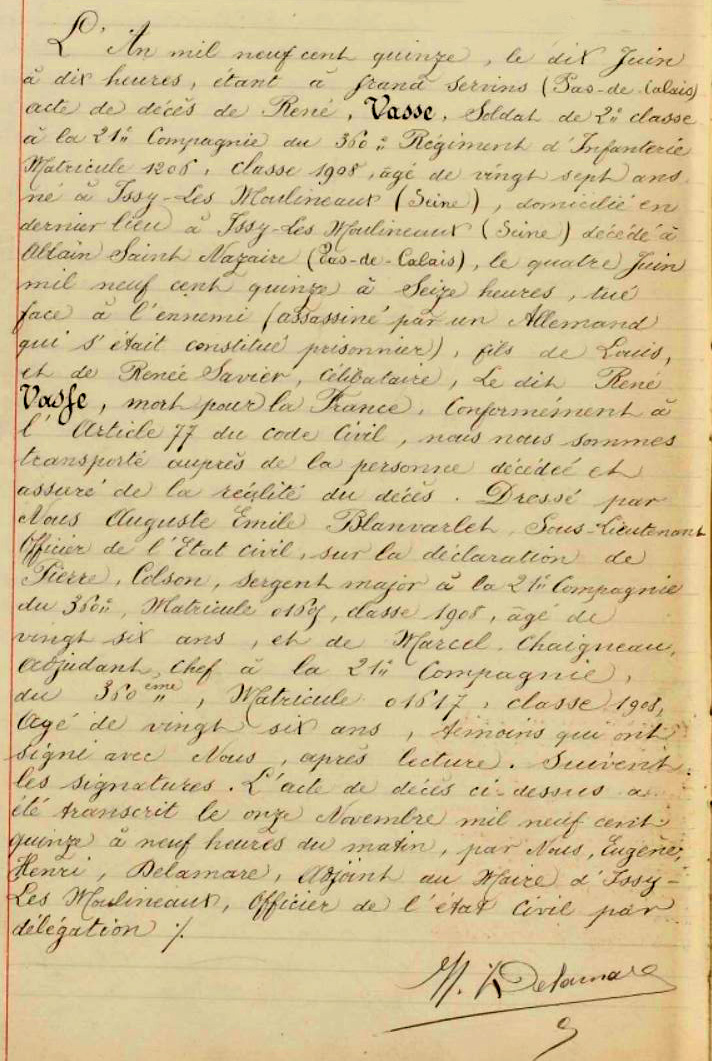 L'An mil neuf cent quinze, le dix Juin
à dix heures, étant à Grand Servins (Pas-de Calais)
acte de décès de René, Vasse, Soldat de 2e classe
à la 21e Compagnie du 360e Régiment d'Infanterie
Matricule 1206, classe 1908, âgé de vingt sept ans
né à Issy-Les Moulineaux (Seine), domicilié en
dernier lieu à Issy-Les Moulineaux (Seine) décédé à
Ablain Saint Nazaire (Pas-de-Calais), le quatre Juin
mil neuf cent quinze à Seize heures, tué
face à l'ennemi (assassiné par un Allemand
qui s'était constitué prisonnier), fils de Louis,
et de Renée Savier, célibataire, Le dit René
Vasse, mort pour la France. Conformément à
l'Article 77 du code Civil, nous nous sommes
transporté auprès de la personne décédée et
assuré de la réalité du décès. Dressé par
Nous Auguste Emile Blanvarlet, Sous-Lieutenant
Officier de l'Etat civil, sur la déclaration de
Pierre, Colson, sergent major à la 21e Compagnie
du 360e, Matricule classe 1908, âgé de
vingt six ans, et de Marcel. Chaigneau,
Adjudant, Chef à la 21e Compagnie,
du 360eme, Matricule 01617, classe 1908,
Agé de vingt six ans, témoins qui ont
signé avec Nous, après lecture. Suivent
les signatures. L'acte de décès ci-dessus a
été transcrit le onze Novembre mil neuf cent
quinze à neuf heures du matin, par Nous, Eugène,
Henri, Delamare, Adjoint au Maire d'Issy-
Les Moulineaux, Officier de l'état Civil par
délégation ./.
H. Delamare